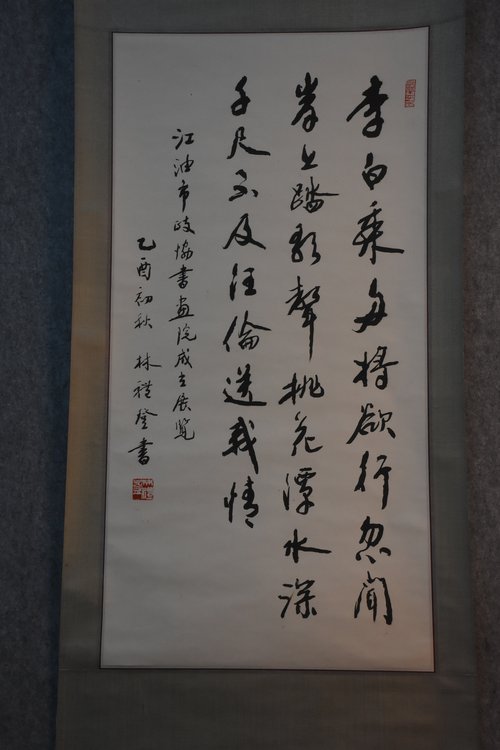 李白乘舟將欲行忽聞
岸上踏歌聲桃花潭水深
千尺不及汪倫送我情
江油市政協書畫院成立展覽
乙酉初秋 林禮登書